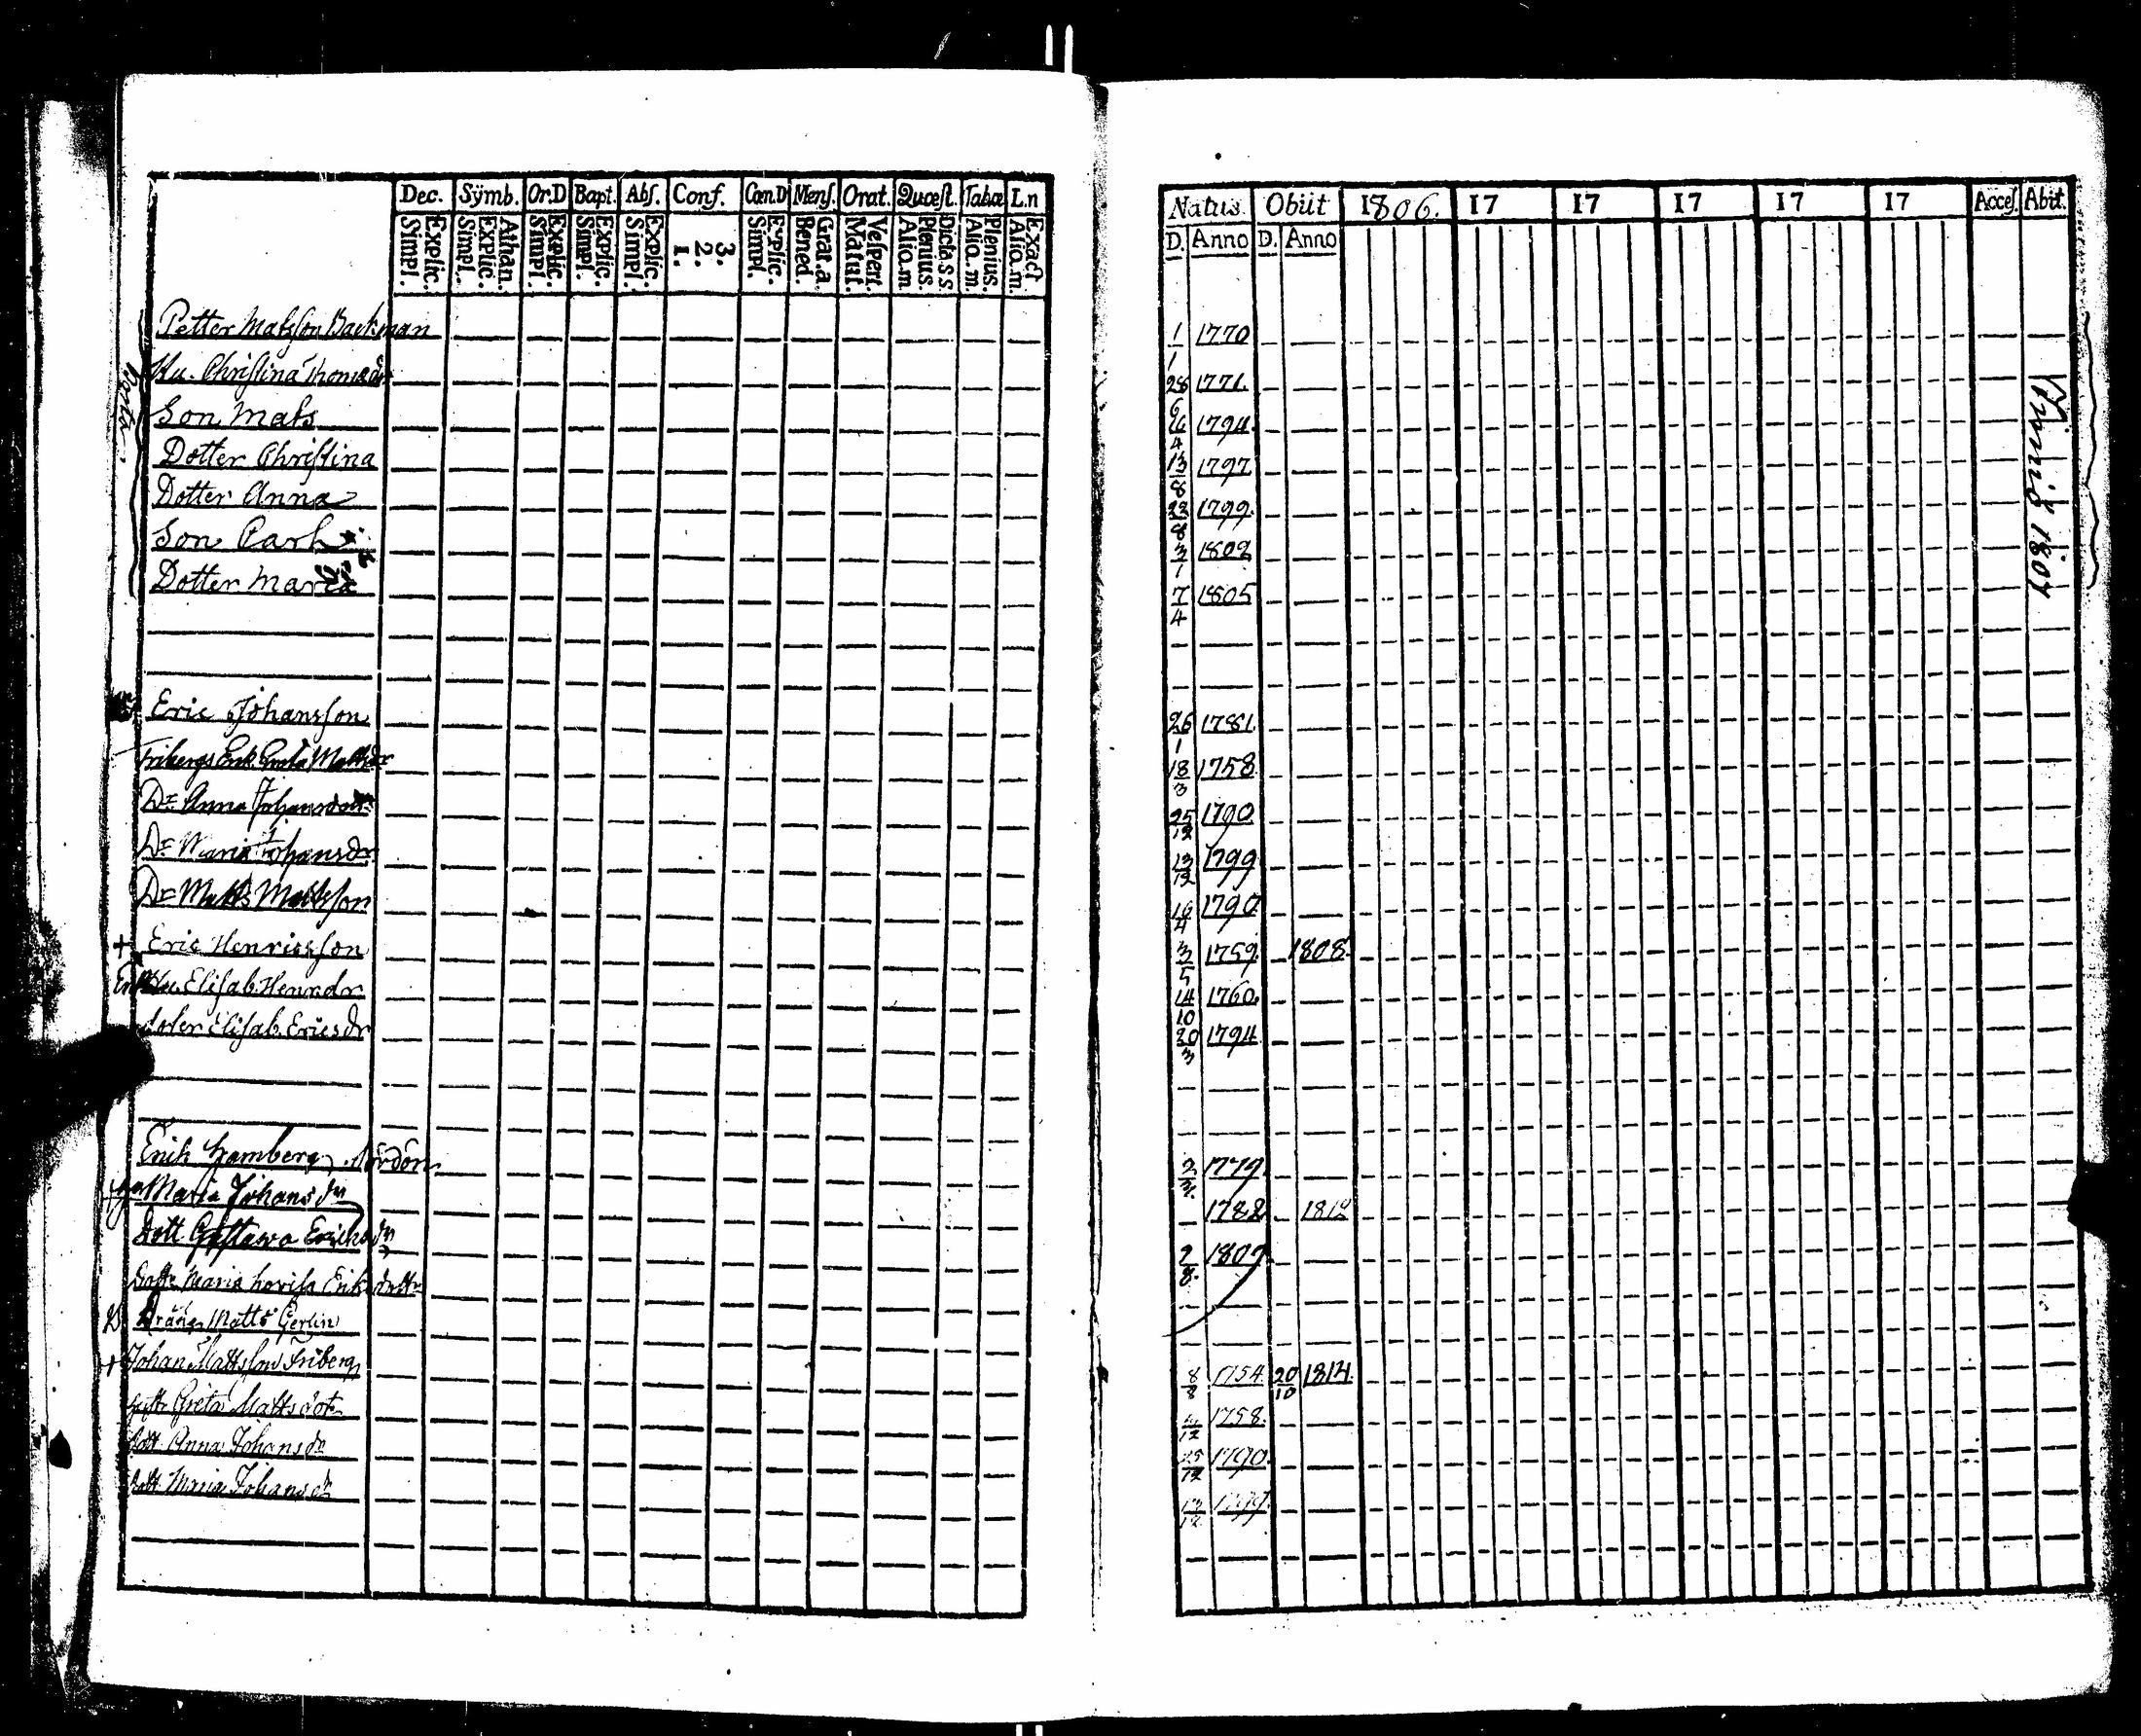 Dec. Sÿmb. Or.D Bapt. Abſ. Conf. Cœn.D Menſ. Orat. Quœſt. Tabœ L.n
Simpl. Explic. Simpl. Explic. Athan. Simpl. Explic. Simpl. Explic. Simpl. Explic. 1. 2. 3. Simpl. Explic. Bened. Grat.a. Matut. Veſpert. Aliq.m Plenius. Dicta S S. Aliq.m. Plenius. Aliq.m. Exact
Petter Matsſon Backman
Hu. Chriſtina Thomædr
Son Mats
Dotter Chriſtina
Dotter Anna
Son Carl
Dotter Maria
Eric Johansſon
Fribergs Enk. Greta Mattsdr
Dr Anna Johansdottr
Dr Maria Johansdr
Dr Matts Mattsſon
+ Eric Henricsſon
Enk Hu. Eliſab. Henr.dr
doter Eliſab. Ericsdr
Erik Hamberg
Maria Johansdr
Dott Guſtava Eriksdr
Dottr Maria Loviſa Erikdottr
Dräng Matts Gerlin
+ Johan Mattsſon Friberg
huſtr Greta Mattsdotr
dott Anna Johansdr
dott Maria Johansdr
Natus. Obiit 1806. 17 17 17 17 17 Acceſ. Abit.
D. Anno D. Anno
1/1 1770
28/6 1771.
1794.
13/8 1797
22/8 1799.
3/1 1802
7/4 1805
1807
26/1 1781.
18/3 1758
25/12 1790
13/12 1799
16/4 1790
3/5 1759. 1808.
14/10 1760.
20/3 1794.
1779.
1782 1818
2/8. 1807.
8/8 1754. 20/10 1814.
1758.
25/12 1790.
13/12 1799.